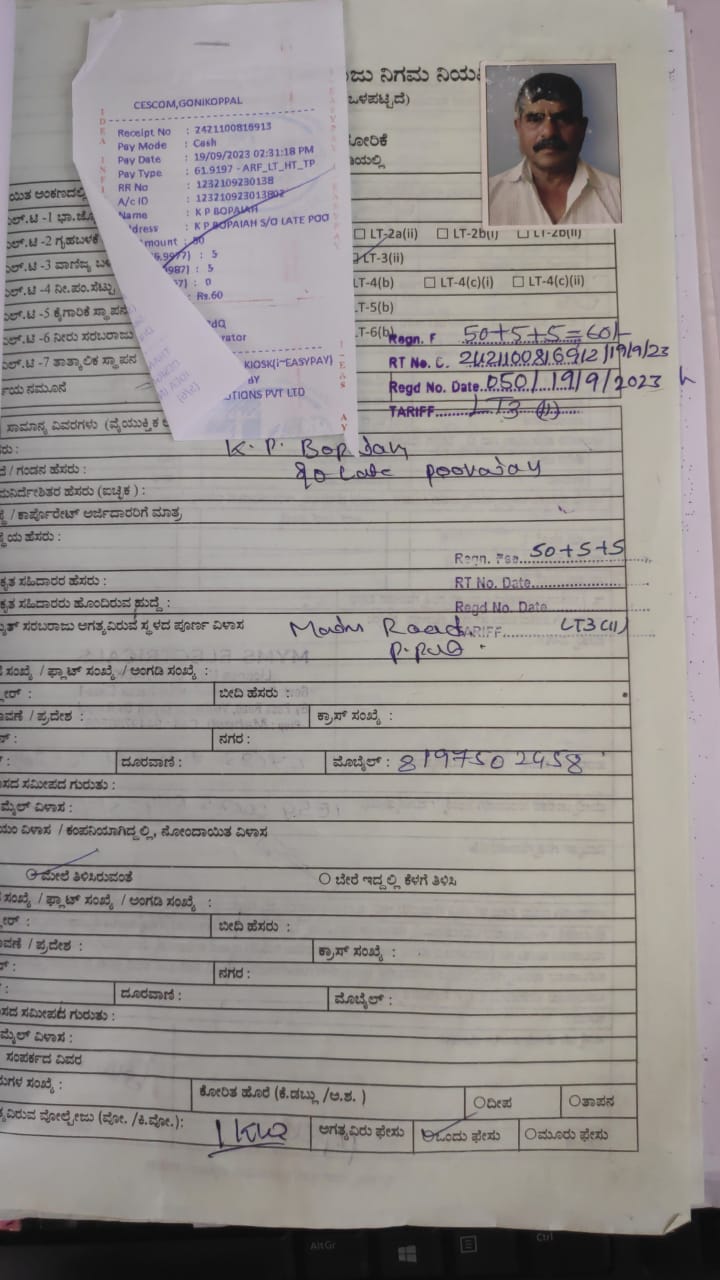 CESCOM,GONIKOPPAL
Receipt No : 2421100816913
Pay Mode : Cash
Pay Date : 19/09/2023 02:31:18 PM
Pay Type : 61.9197 - ARF_LT_HT_TP
RR No : 1232109230138
A/c ID : 1232109230138
Name : K P BOPAIAH
ddress : K P BOPAIAH S/O LATE POO
mount : 50
: 5
987) : 5
: 0
: Rs.60
rator
KIOSK(i~EASYPAY)
BY
TIONS PVT LTD
ನಿಗಮ ನಿಯ
ಒಳಪಟ್ಟಿದೆ)
ೋರಿಕೆ
ಯಿತ ಅಂಕಣದಲ್ಲಿ
ಎಲ್.ಟಿ -1 ಭಾ.ಜ್ಯೋ
ಎಲ್.ಟಿ -2 ಗೃಹಬಳಕೆ
LT-2a(ii) LT-2b(i) LT-2b(ii)
ಎಲ್.ಟಿ -3 ವಾಣಿಜ್ಯ ಬಳ
LT-3(ii)
ಎಲ್.ಟಿ -4 ನೀ.ಪಂ.ಸೆಟ್ಟು
LT-4(b) LT-4(c)(i) LT-4(c)(ii)
ಎಲ್.ಟಿ -5 ಕೈಗಾರಿಕೆ ಸ್ಥಾಪನ
LT-5(b)
ಎಲ್.ಟಿ -6 ನೀರು ಸರಬರಾಜು
LT-6(b)
ಎಲ್.ಟಿ -7 ತಾತ್ಕಾಲಿಕ ಸ್ಥಾಪನ
ಯ ನಮೂನೆ
Regn. F 50+5+5=60/-
RT No. C. 2421100816912/19/9/23
Regd No. Date. 050/19/9/2023
TARIFF LT3 (ii)
ಸಾಮಾನ್ಯ ವಿವರಗಳು (ವೈಯುಕ್ತಿಕ
ರು : K. P. Bopaiay
ೆ / ಗಂಡನ ಹೆಸರು : S/o Late poovaiay
ಮನಿರ್ದೇಶಿತರ ಹೆಸರು (ಐಚ್ಛಿಕ) :
ೆ / ಕಾರ್ಪೊರೇಟ್ ಅರ್ಜಿದಾರರಿಗೆ ಮಾತ್ರ
ೆಯ ಹೆಸರು :
Regn. Fee 50+5+5
ಕೃತ ಸಹಿದಾರರ ಹೆಸರು :
RT No. Date
ಕೃತ ಸಹಿದಾರರು ಹೊಂದಿರುವ ಹುದ್ದೆ :
Regd No. Date
ಯುತ್ ಸರಬರಾಜು ಅಗತ್ಯವಿರುವ ಸ್ಥಳದ ಪೂರ್ಣ ವಿಳಾಸ
TARIFF LT3(ii)
Road
ಸಂಖ್ಯೆ / ಫ್ಲಾಟ್ ಸಂಖ್ಯೆ / ಅಂಗಡಿ ಸಂಖ್ಯೆ :
ೇರ್ : ಬೀದಿ ಹೆಸರು :
ಾವಣೆ / ಪ್ರದೇಶ : ಕ್ರಾಸ್ ಸಂಖ್ಯೆ :
ನಗರ :
ದೂರವಾಣಿ : ಮೊಬೈಲ್ : 8197502458
ಸದ ಸಮೀಪದ ಗುರುತು :
ಮೈಲ್ ವಿಳಾಸ :
ಯಂ ವಿಳಾಸ / ಕಂಪನಿಯಾಗಿದ್ದಲ್ಲಿ, ನೋಂದಾಯಿತ ವಿಳಾಸ
ಮೇಲೆ ತಿಳಿಸಿರುವಂತೆ ಬೇರೆ ಇದ್ದಲ್ಲಿ ಕೆಳಗೆ ತಿಳಿಸಿ
ಸಂಖ್ಯೆ / ಫ್ಲಾಟ್ ಸಂಖ್ಯೆ / ಅಂಗಡಿ ಸಂಖ್ಯೆ :
ೇರ್ : ಬೀದಿ ಹೆಸರು :
ಾವಣೆ / ಪ್ರದೇಶ : ಕ್ರಾಸ್ ಸಂಖ್ಯೆ :
ನಗರ :
ದೂರವಾಣಿ : ಮೊಬೈಲ್ :
ಸದ ಸಮೀಪದ ಗುರುತು :
ಮೈಲ್ ವಿಳಾಸ :
ಸಂಪರ್ಕದ ವಿವರ
ುಗಳ ಸಂಖ್ಯೆ : ಕೋರಿತ ಹೊರೆ (ಕೆ.ಡಬ್ಲು /ಅ.ಶ.) ದೀಪ ತಾಪನ
್ಯವಿರುವ ವೋಲ್ಟೇಜು (ವೋ. /ಕಿ.ವೋ.): 1 KW ಅಗತ್ಯವಿರು ಫೇಸು ಒಂದು ಫೇಸು ಮೂರು ಫೇಸು
AltGr
Ctrl